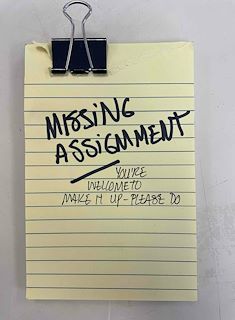 MISSING
ASSIGNMENT
YOU'RE
WELCOME TO
MAKE IT UP - PLEASE DO